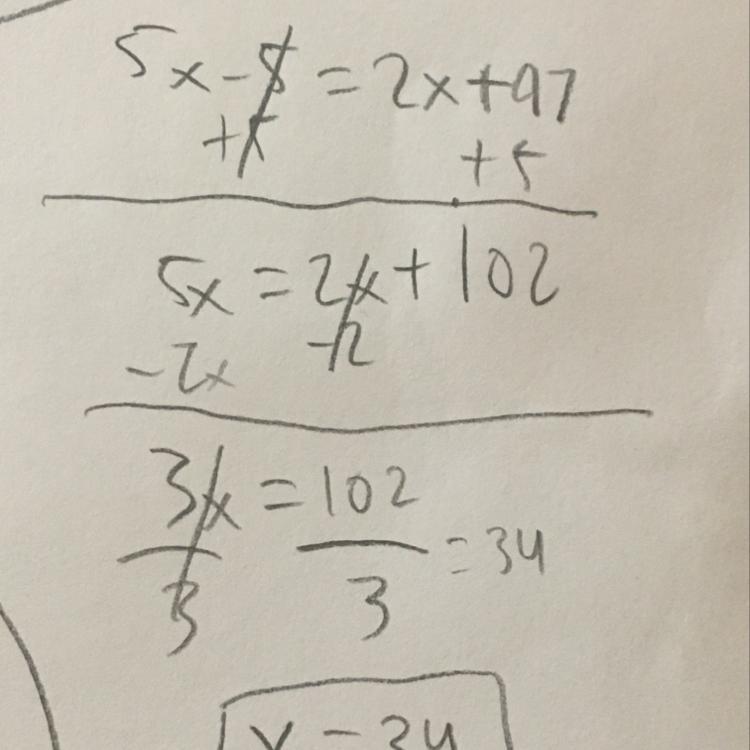 5x - 5 = 2x + 97
+5 +5
5x = 2x + 102
-2x -2
3x = 102
3 3 = 34
x = 34